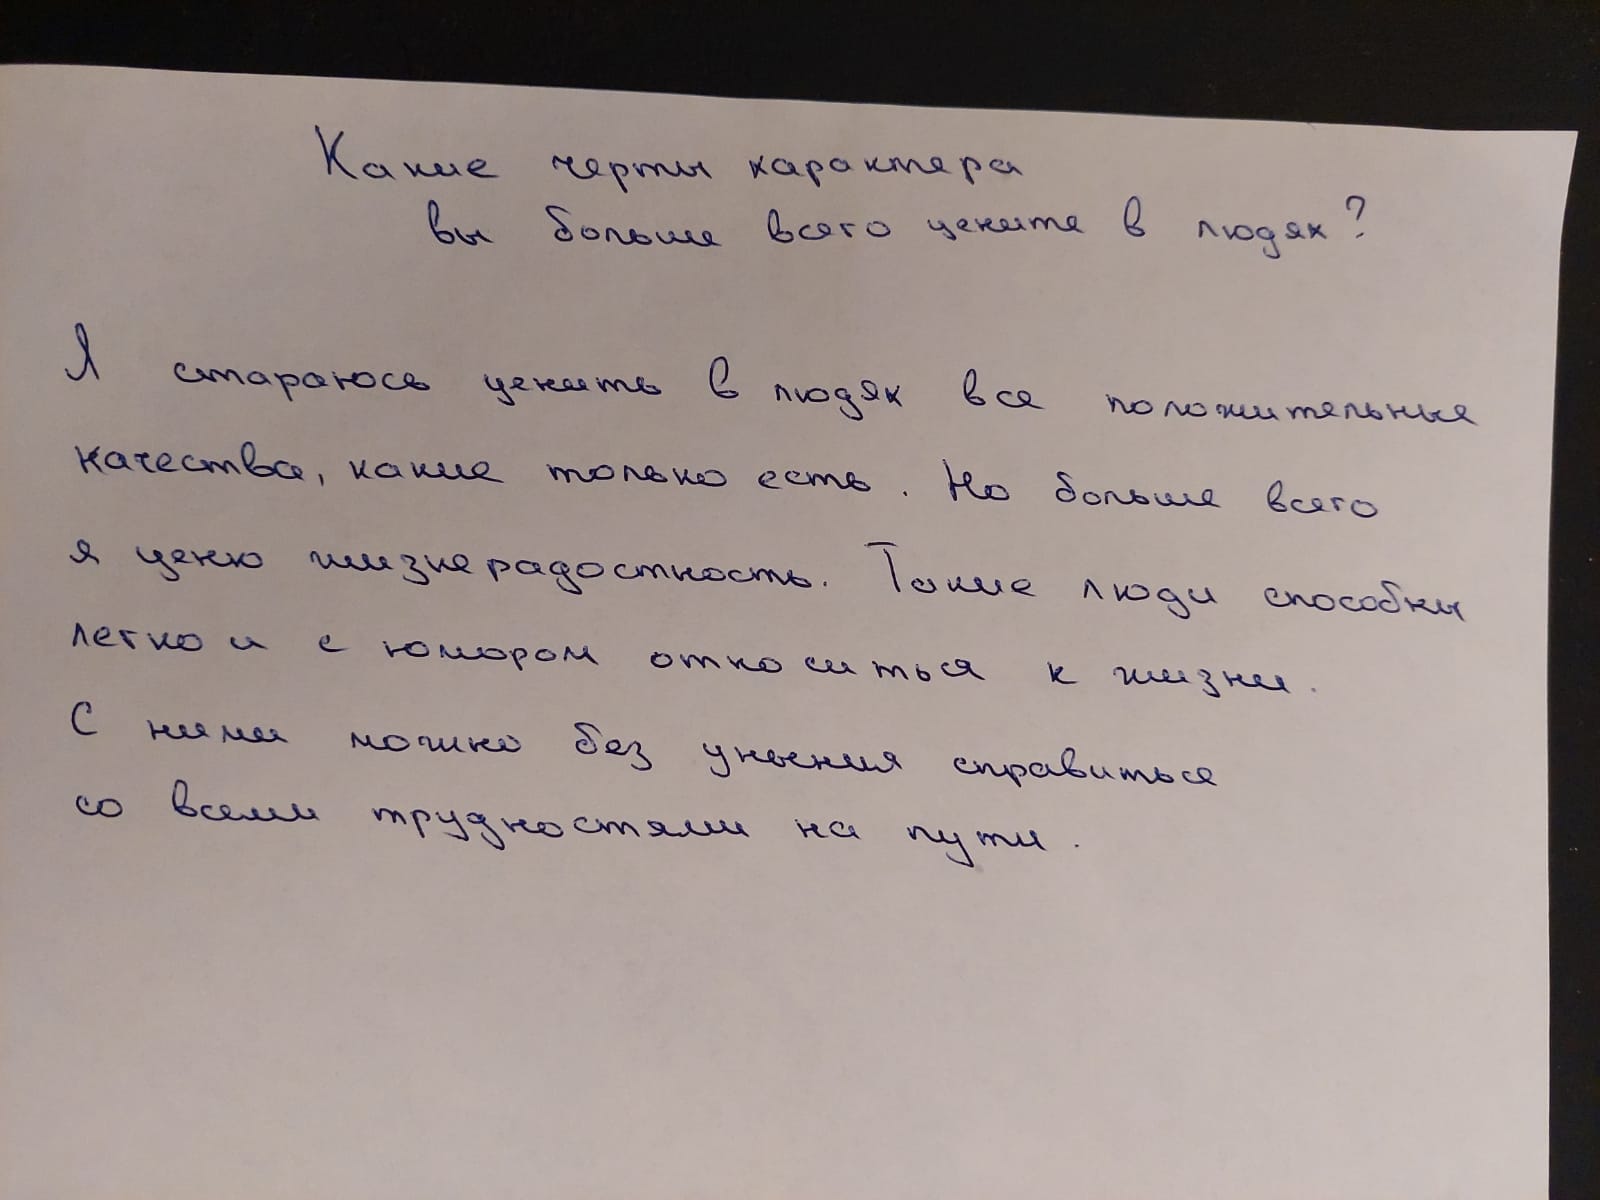 Какие черты характера
вы больше всего цените в людях?
Я стараюсь ценить в людях все положительные
качества, какие только есть. Но больше всего
я ценю жизнерадостность. Такие люди способны
легко и с юмором относиться к жизни.
С ними можно без уныния справиться
со всеми трудностями на пути.